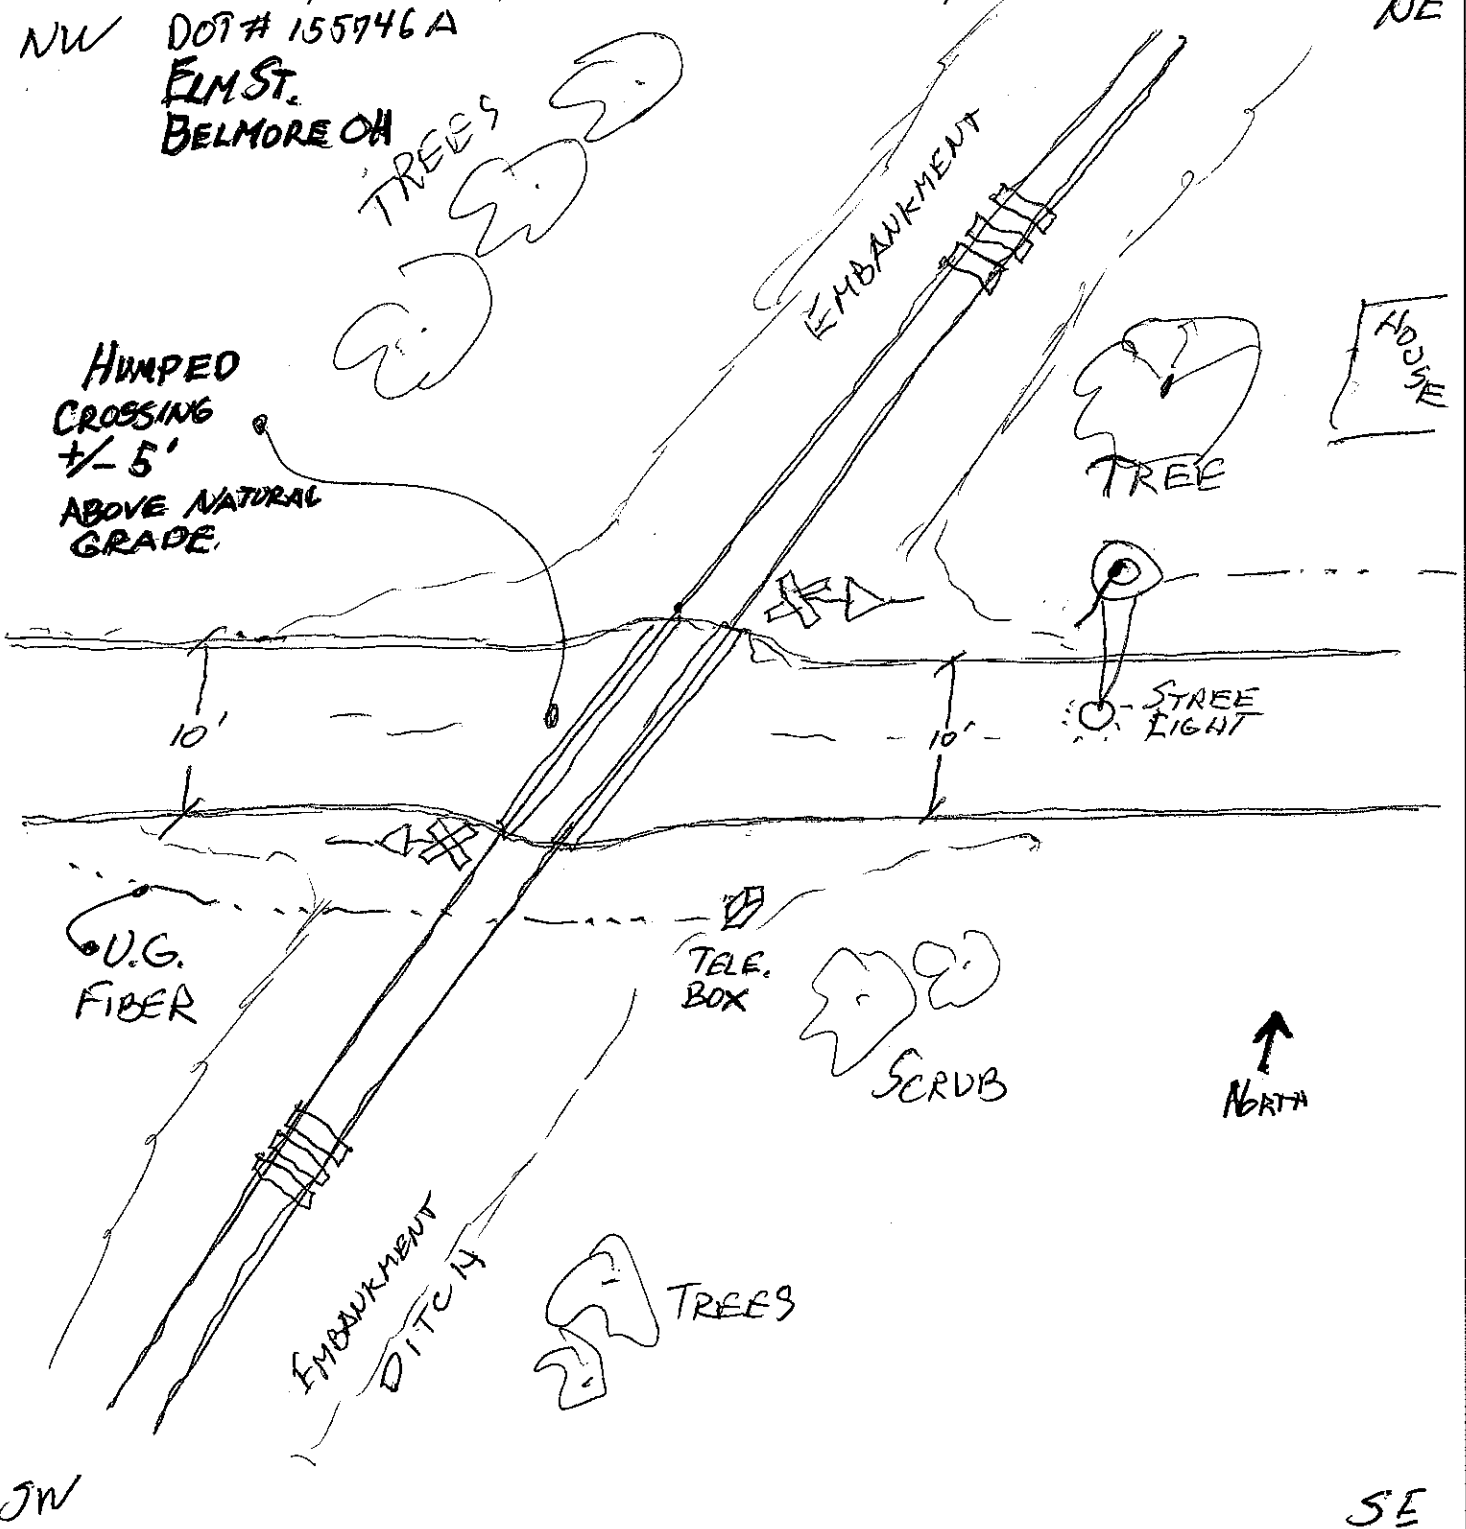 NW
NE
DOT # 155746A
ELM ST.
BELMORE OH
TREES
EMBANKMENT
HOUSE
HUMPED
CROSSING
+/- 5'
ABOVE NATURAL
GRADE.
TREE
10'
10'
STREE
LIGHT
U.G.
FIBER
TELE.
BOX
SCRUB
NORTH
EMBANKMENT
DITCH
TREES
SW
SE